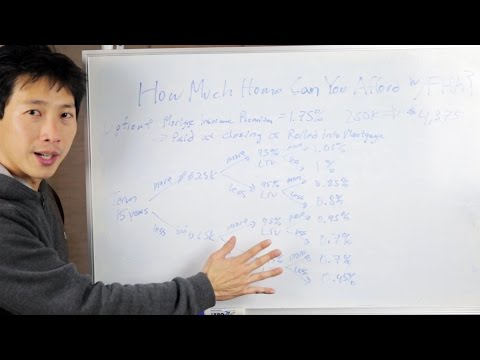 How Much Home Can You Afford w/ FHA?
Upfront Mortgage Insurance Premium = 1.75% 250K → $4,375
→ Paid at closing or Rolled Into Mortgage
more 95% more 1.05%
more $625K LTV less 1%
less 95% more 0.85%
Term LTV less 0.8%
15 years
less $625K more 95% more 0.95%
LTV less 0.7%
more 0.7%
less 0.45%